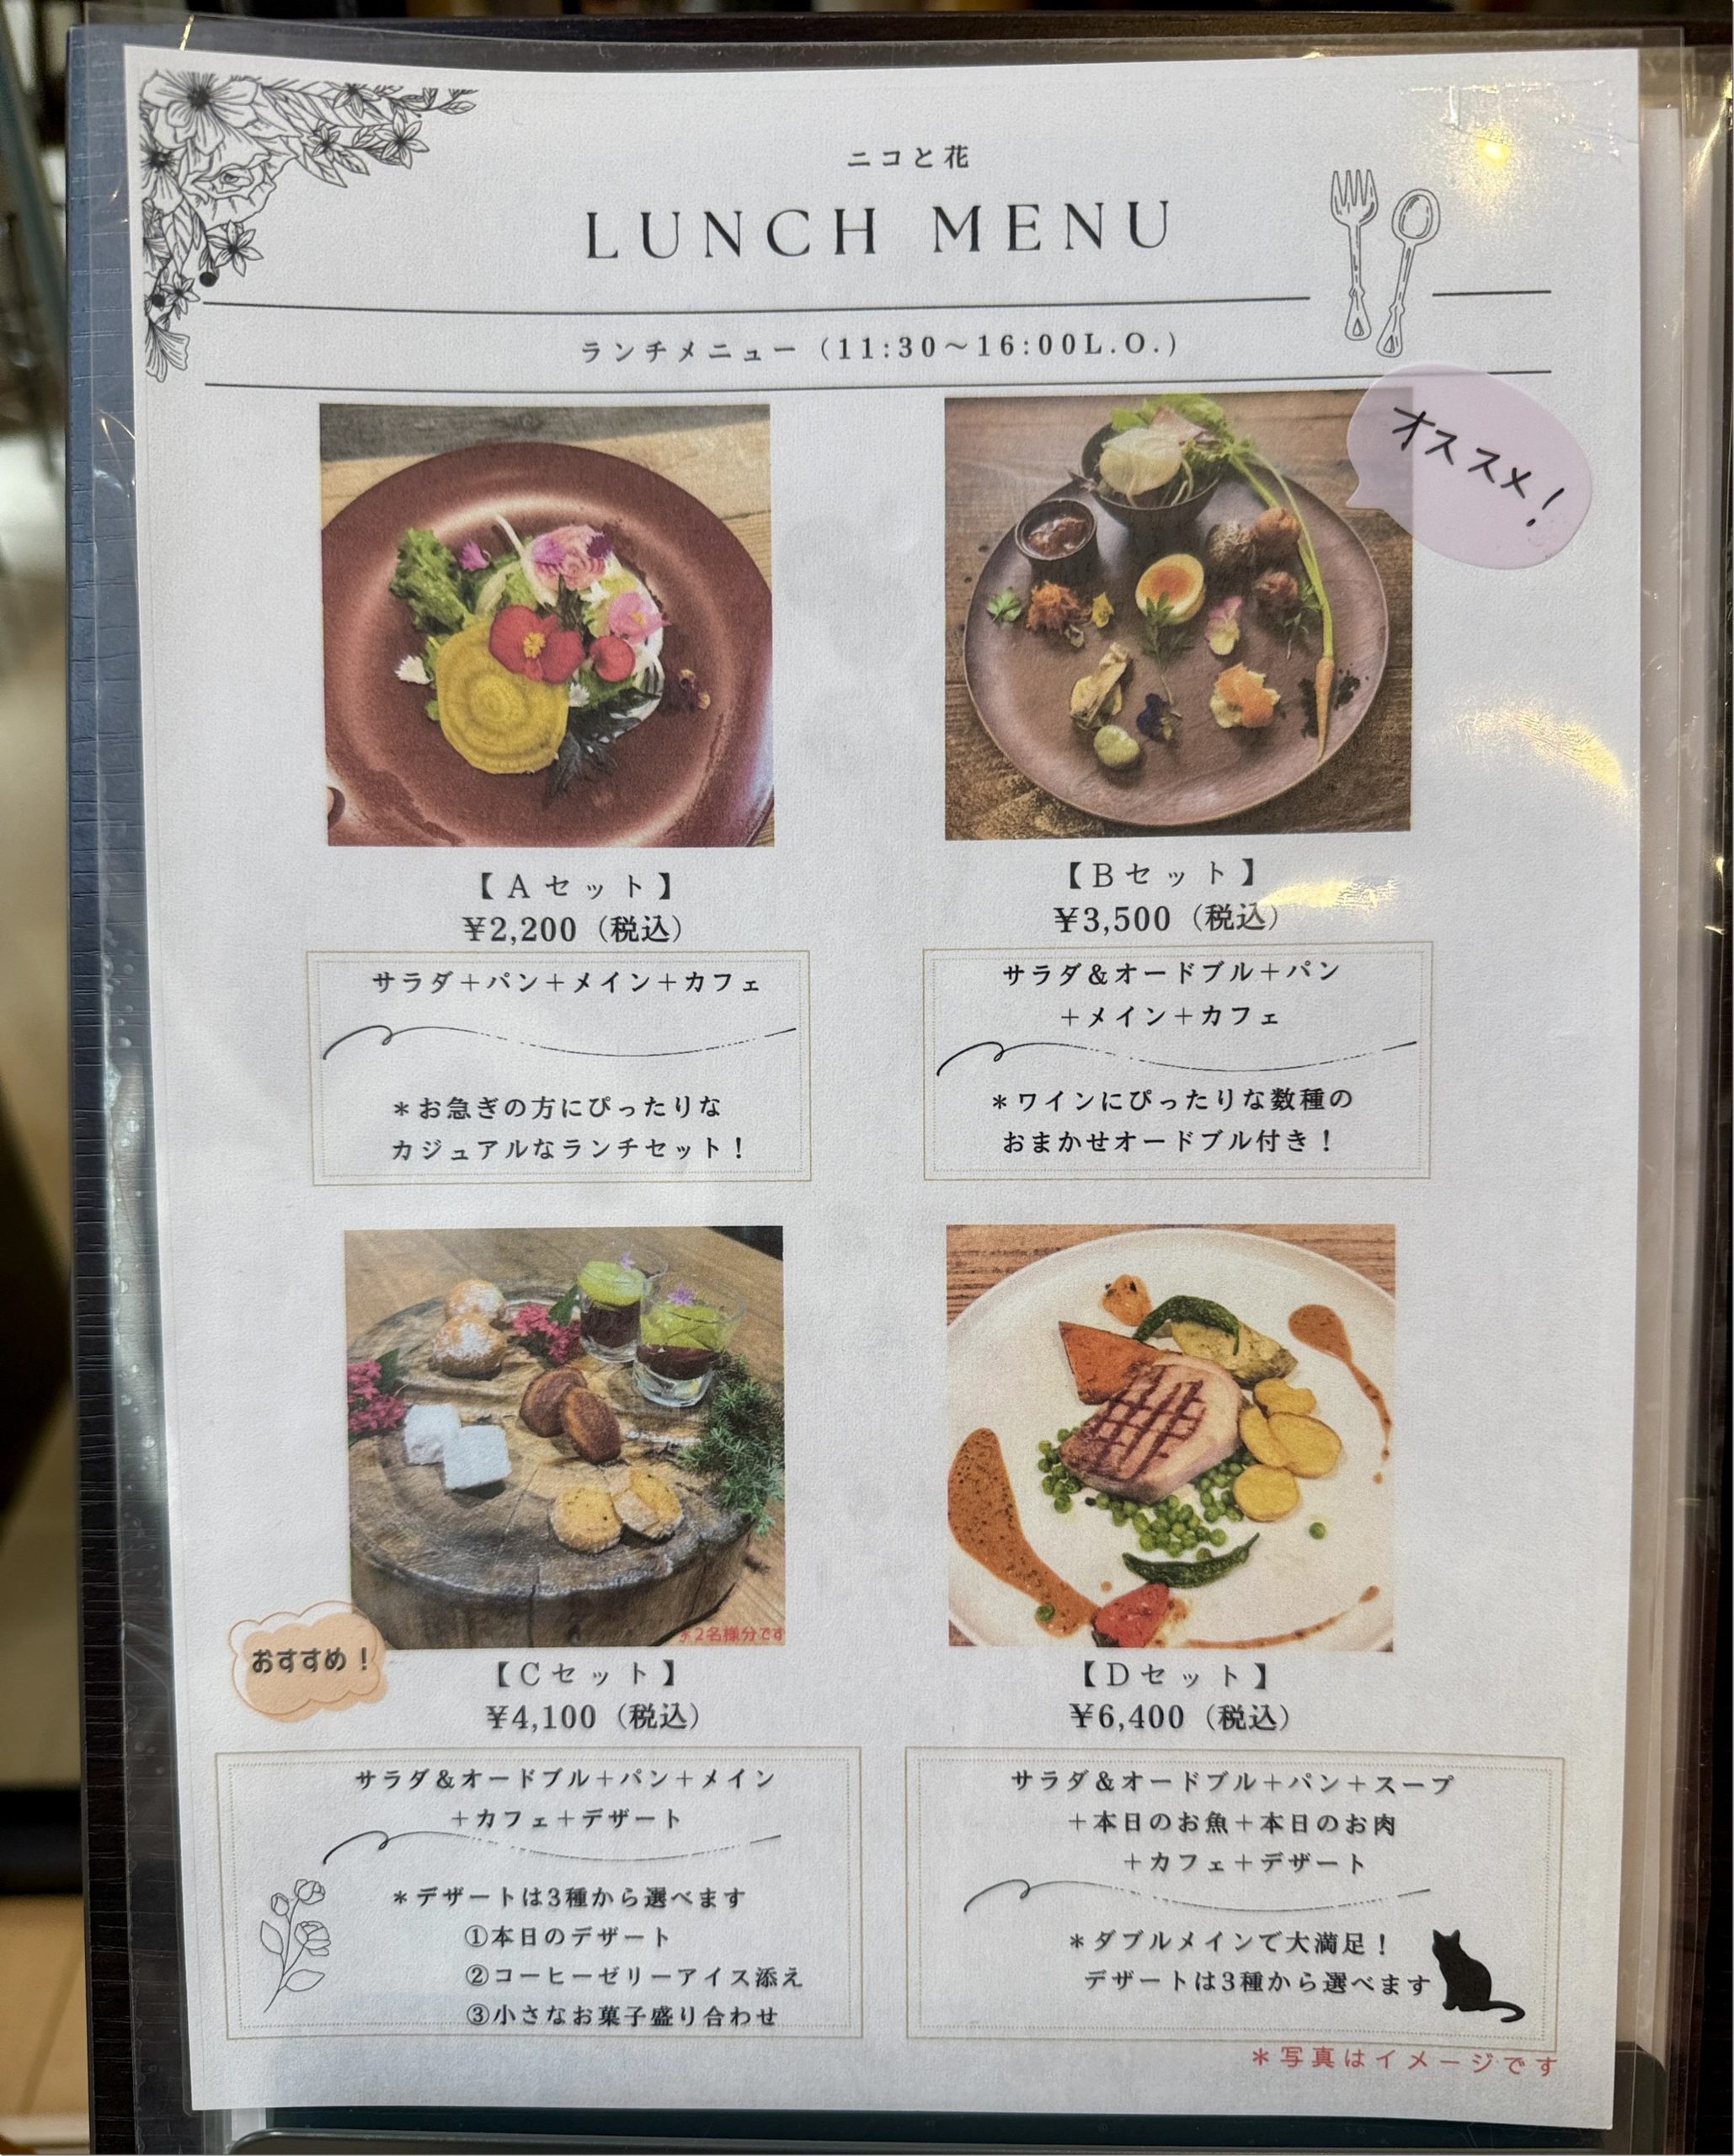 ニコと花
LUNCH MENU
ランチメニュー（11:30～16:00L.O.）
オススメ！
【Aセット】
¥2,200（税込）
サラダ＋パン＋メイン＋カフェ
＊お急ぎの方にぴったりな
カジュアルなランチセット！
【Bセット】
¥3,500（税込）
サラダ＆オードブル＋パン
＋メイン＋カフェ
＊ワインにぴったりな数種の
おまかせオードブル付き！
※2名様分です
おすすめ！
【Cセット】
¥4,100（税込）
サラダ＆オードブル＋パン＋メイン
＋カフェ＋デザート
＊デザートは3種から選べます
①本日のデザート
②コーヒーゼリーアイス添え
③小さなお菓子盛り合わせ
【Dセット】
¥6,400（税込）
サラダ＆オードブル＋パン＋スープ
＋本日のお魚＋本日のお肉
＋カフェ＋デザート
＊ダブルメインで大満足！
デザートは3種から選べます
＊写真はイメージです